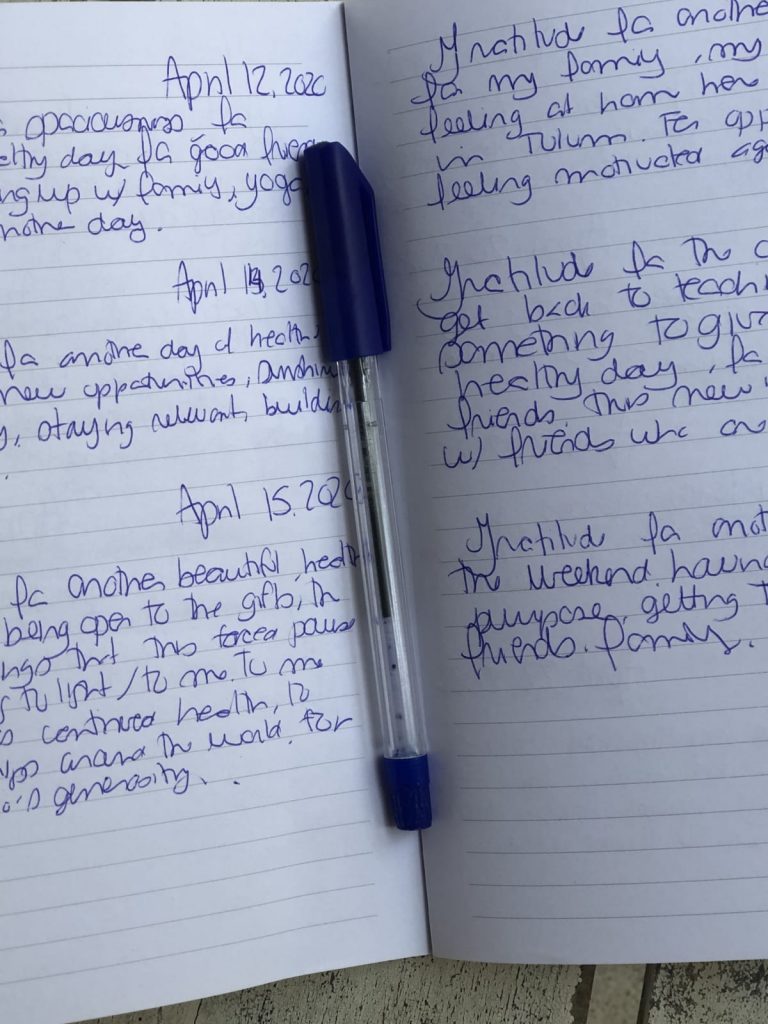 April 12, 2020
spaciousness fa
day fa good
up w/ family, yoga
day.
April 2020
fa another day of health
new opportunities, sunshin
staying relevant, buildin
April 15, 2020
fa another beautiful health
being open to the gifts, th
that this forced pause
to light / to me. To me
continued health, to
around the world. for
generosity. .
Gratitud fa anothe
for my family, my
feeling at hom her
in Tulum. For opp
feeling motivated aga
Gratitud fa the
get back to teachi
something to giv
healthy day, fa
friends. this new
w/ friends who
Gratitud fa anot
the weekend, havin
purpose, getting t
friends. family.